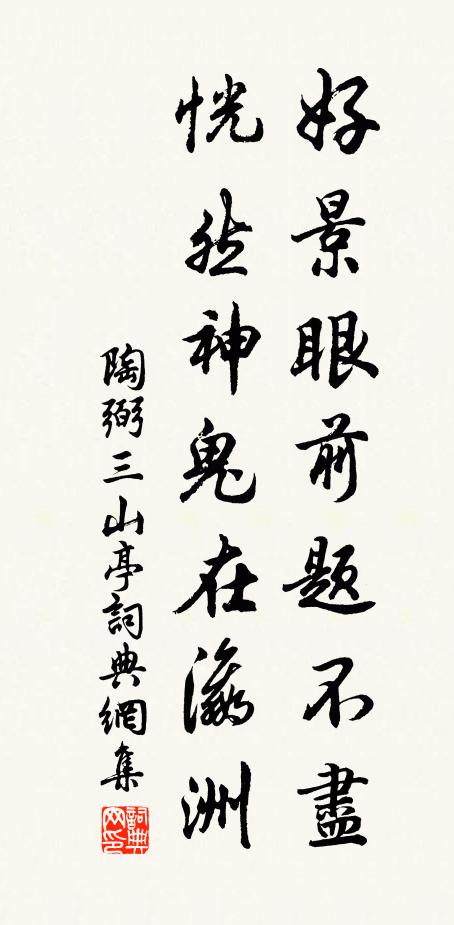 好景眼前題不盡
恍然神鬼在瀛洲
陶弼三山亭詞典網集
詞典网印